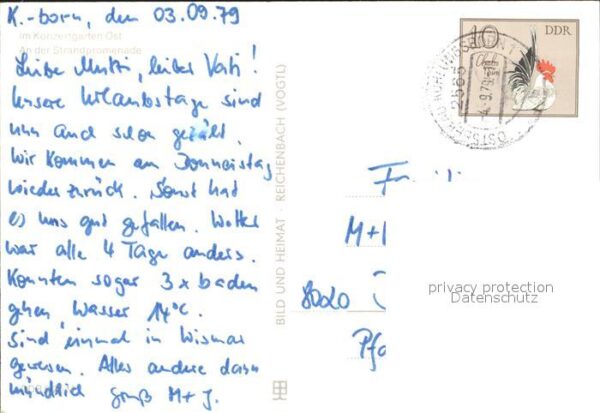 K.-born, den 03.09.79
Im Konzertgarten Ost
An der Strandpromenade
Liebe Mutti, lieber Vati!
Unsere Urlaubstage sind
nun auch schon gezählt.
Wir kommen am Donnerstag
wieder zurück. Sonst hat
es uns gut gefallen. Wetter
war alle 4 Tage anders.
Konnten sogar 3x baden
gehen, Wasser 14°C.
Sind einmal in Wismar
gewesen. Alles andere dann
mündlich Gruß M+J.
BILD UND HEIMAT REICHENBACH (VOGTL)
10 DDR
2565
-4.9.79
OSTSEEBAD KÜHLUNGSBORN 1
M+
8020
privacy protection
Datenschutz